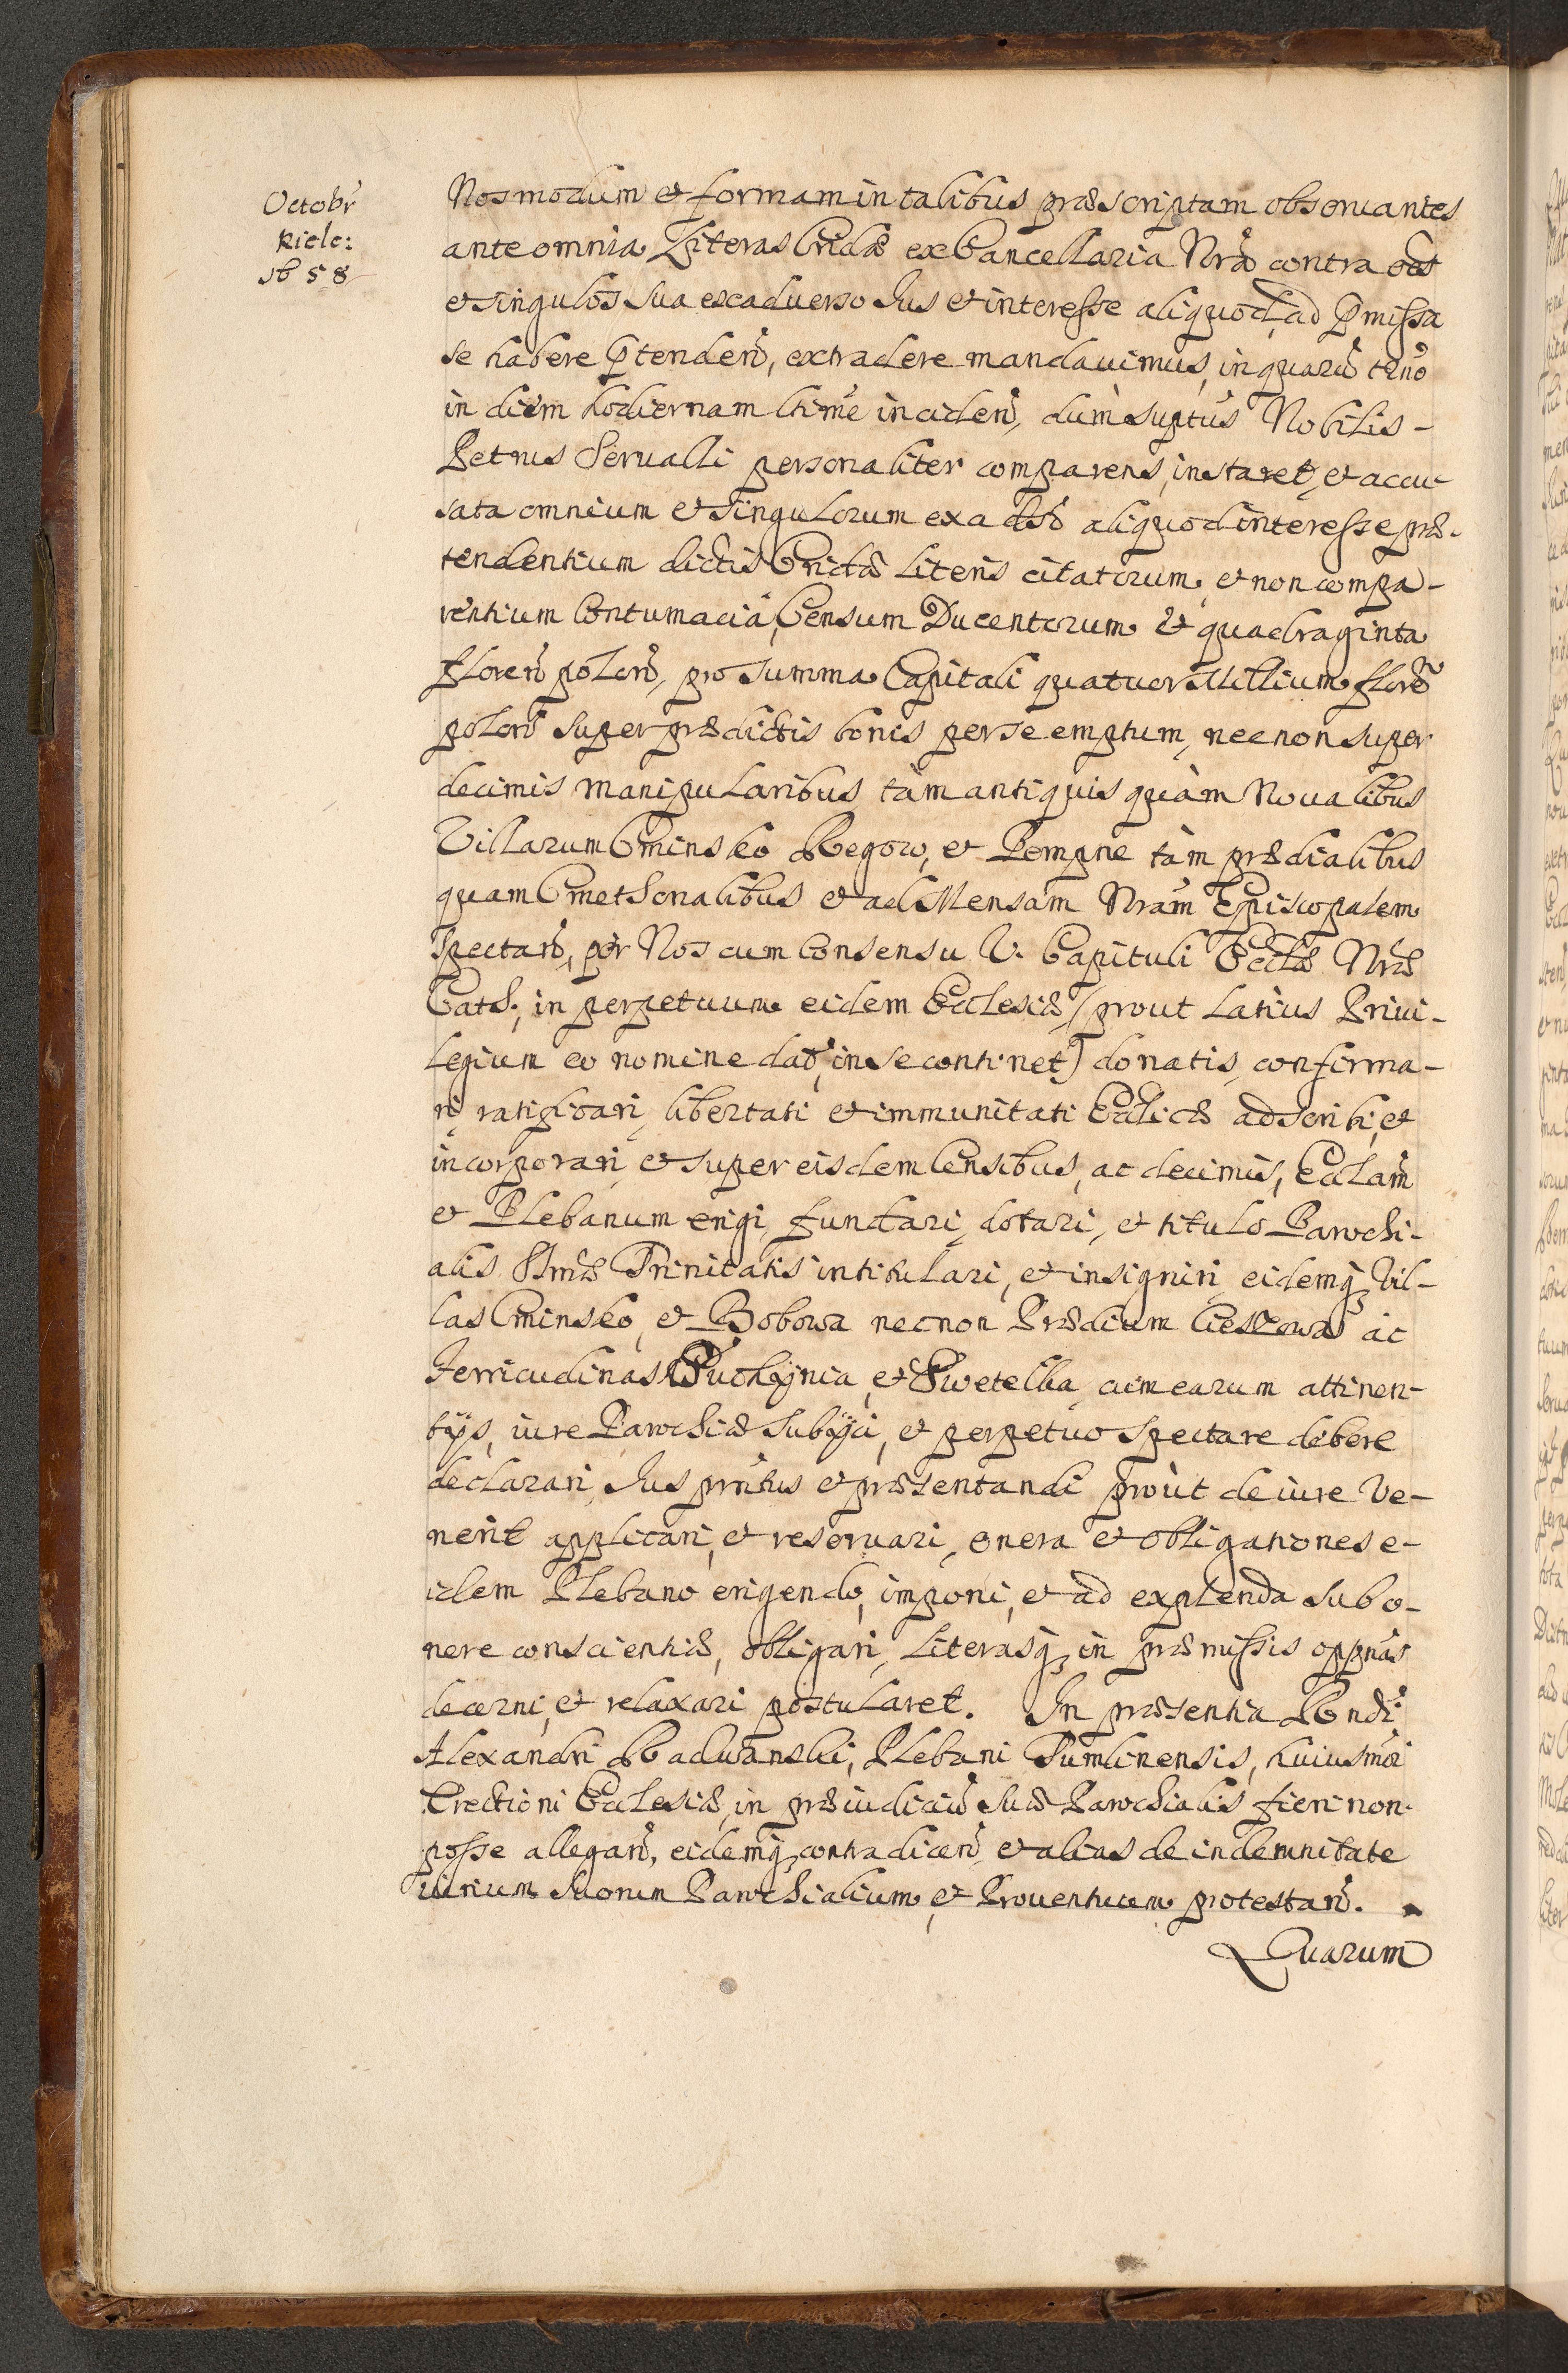 Octobr
Kielc:
1658
Nos modum et formam in talibus præscriptam obseruantes
ante omnia Literas Cridæ ex Cancellaria Nrâ contra oẽs
et singulos sua ex aduerso Jus et interesse aliquod, ad p̃missa
se habere p̃tenden̄, extradere mandauimus, in quarũ tr̃no
in diem hodiernam ltimè inciden̄, dum supt̃us Nobilis -
Petrus Serualli personaliter comparens, instaret, et accu-
sata omnium et singulorum ex adũo aliquod interesse præ-
tendentium dictis Cridæ Literis citatorum, et non compa-
rentium Contumaciâ, Censum Ducentorum et quadraginta
floren̄ polon̄, pro summa Capitali quatuor Millium floren̄
polon̄ super prædictis bonis per se emptum, necnon super
decimis manipularibus tàm antiquis quàm Noualibus
Villarum Cminsko Regow, et Pempne tàm prædialibus
quam Cmethonalibus et ad Mensam Nram Episcopalem
spectan̄, per Nos cum Consensu V. Capituli Ecclæ Nræ
Cath:, in perpetuum eidem Ecclesiæ (prout latius Priui-
legium eo nomine dat̃, in se continet) donatis, confirma-
ri, ratificari, libertati et immunitati Eccl̃icæ adscribi, et
incorporari, et super eisdem Censibus, ac decimis, Ecclam̃
et Plebanum erigi, fundari, dotari, et titulo Parochi-
alis SSmæ Trinitatis intitulari, et insigniri, eidemq̃ Vil-
las Cminsko, et Bobowa necnon Prædium Cieszowa ac
Ferricudinas Duchynia, et Swetelka, cum earum attinen-
tijs, iure Parochiæ subijci, et perpetuo spectare debere
declarari, Jus prñtus et præsentandi prout de iure Ve-
nerit applicari, et reseruari, onera et obligationes e-
idem Plebano erigendo, imponi, et ad explenda sub o-
nere conscientiæ, obligari, Literasq̃ in præmissis oppnas
decerni, et relaxari postularet. In præsentia Rndi
Alexandri Radwanski, Plebani Tumlinensis, huiusmõi
Erectioni Ecclesiæ, in præiudiciũ suæ Parochialis fieri non
posse allegan̄, eidemq̃ contradicen̄, et alias de indemnitate
iurium suorum Parochialium, et Prouentuum protestan̄.
Quarum